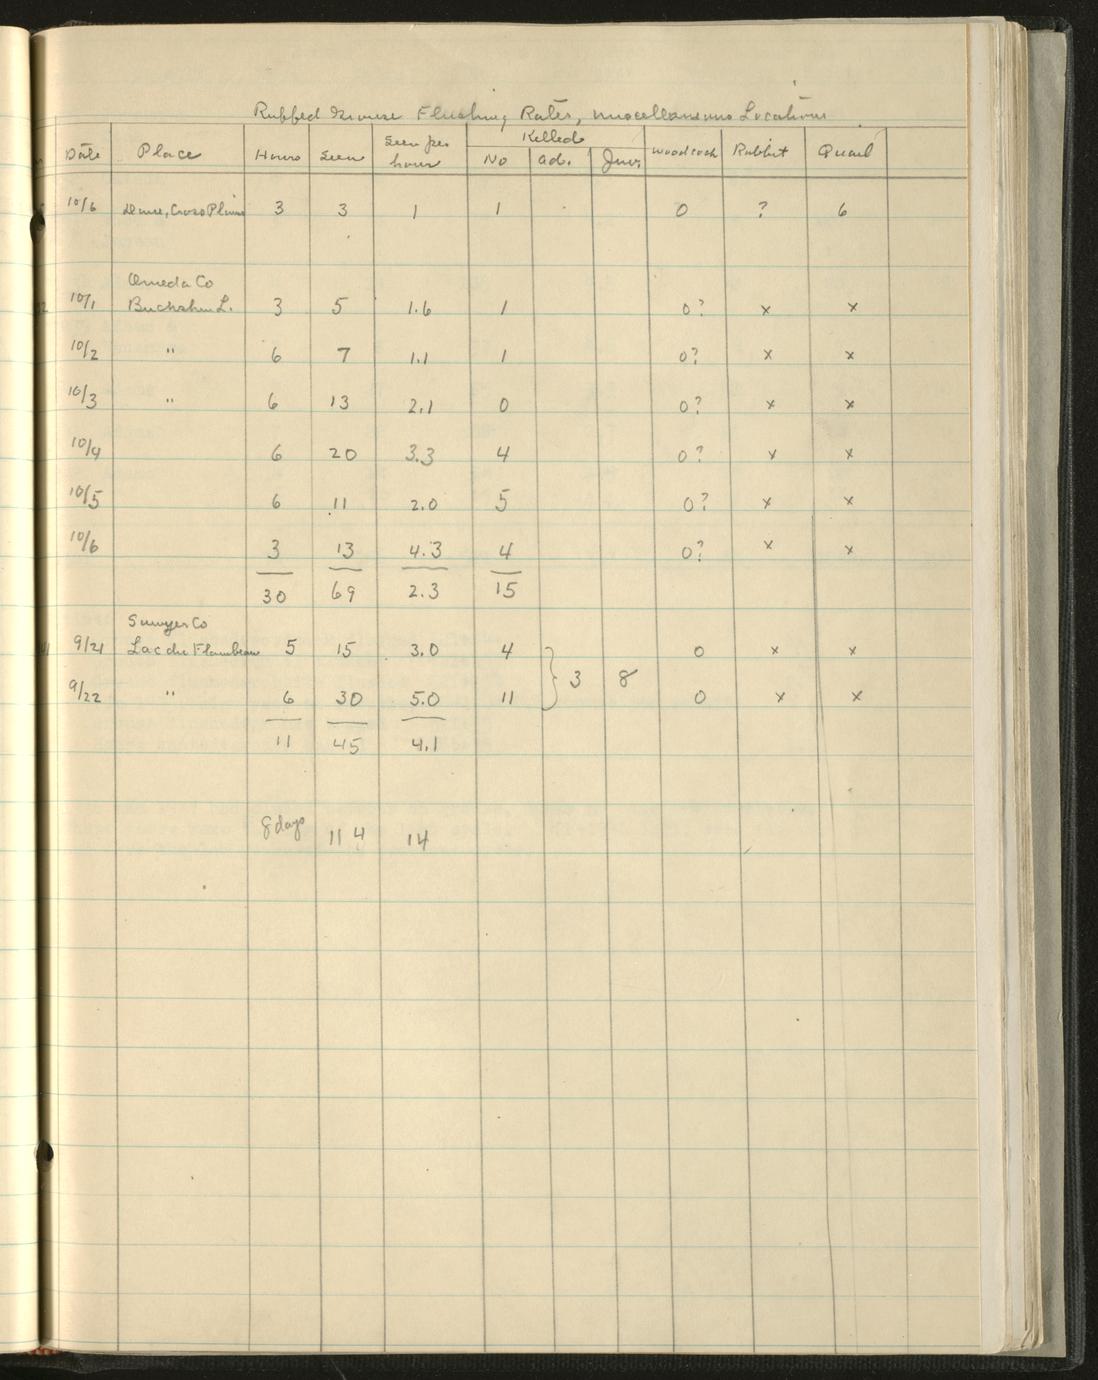 Ruffed Grouse Flushing Rates, Miscellaneous Locations
Date Place Hours Seen Seen per hour Killed No ad. Juv. Woodcock Rabbit Quail
10/6 Dane, Cross Plains 3 3 1 1 0 ? 6
Oneida Co
10/1 Buckskin L. 3 5 1.6 1 0? x x
10/2 " 6 7 1.1 1 0? x x
10/3 " 6 13 2.1 0 0? x x
10/4 6 20 3.3 4 0? x x
10/5 6 11 2.0 5 0? x x
10/6 3 13 4.3 4 0? x x
30 69 2.3 15
Sawyer Co
9/21 Lac du Flambeau 5 15 3.0 4 0 x x
3 8
9/22 " 6 30 5.0 11 0 x x
11 45 4.1
8 days 114 14